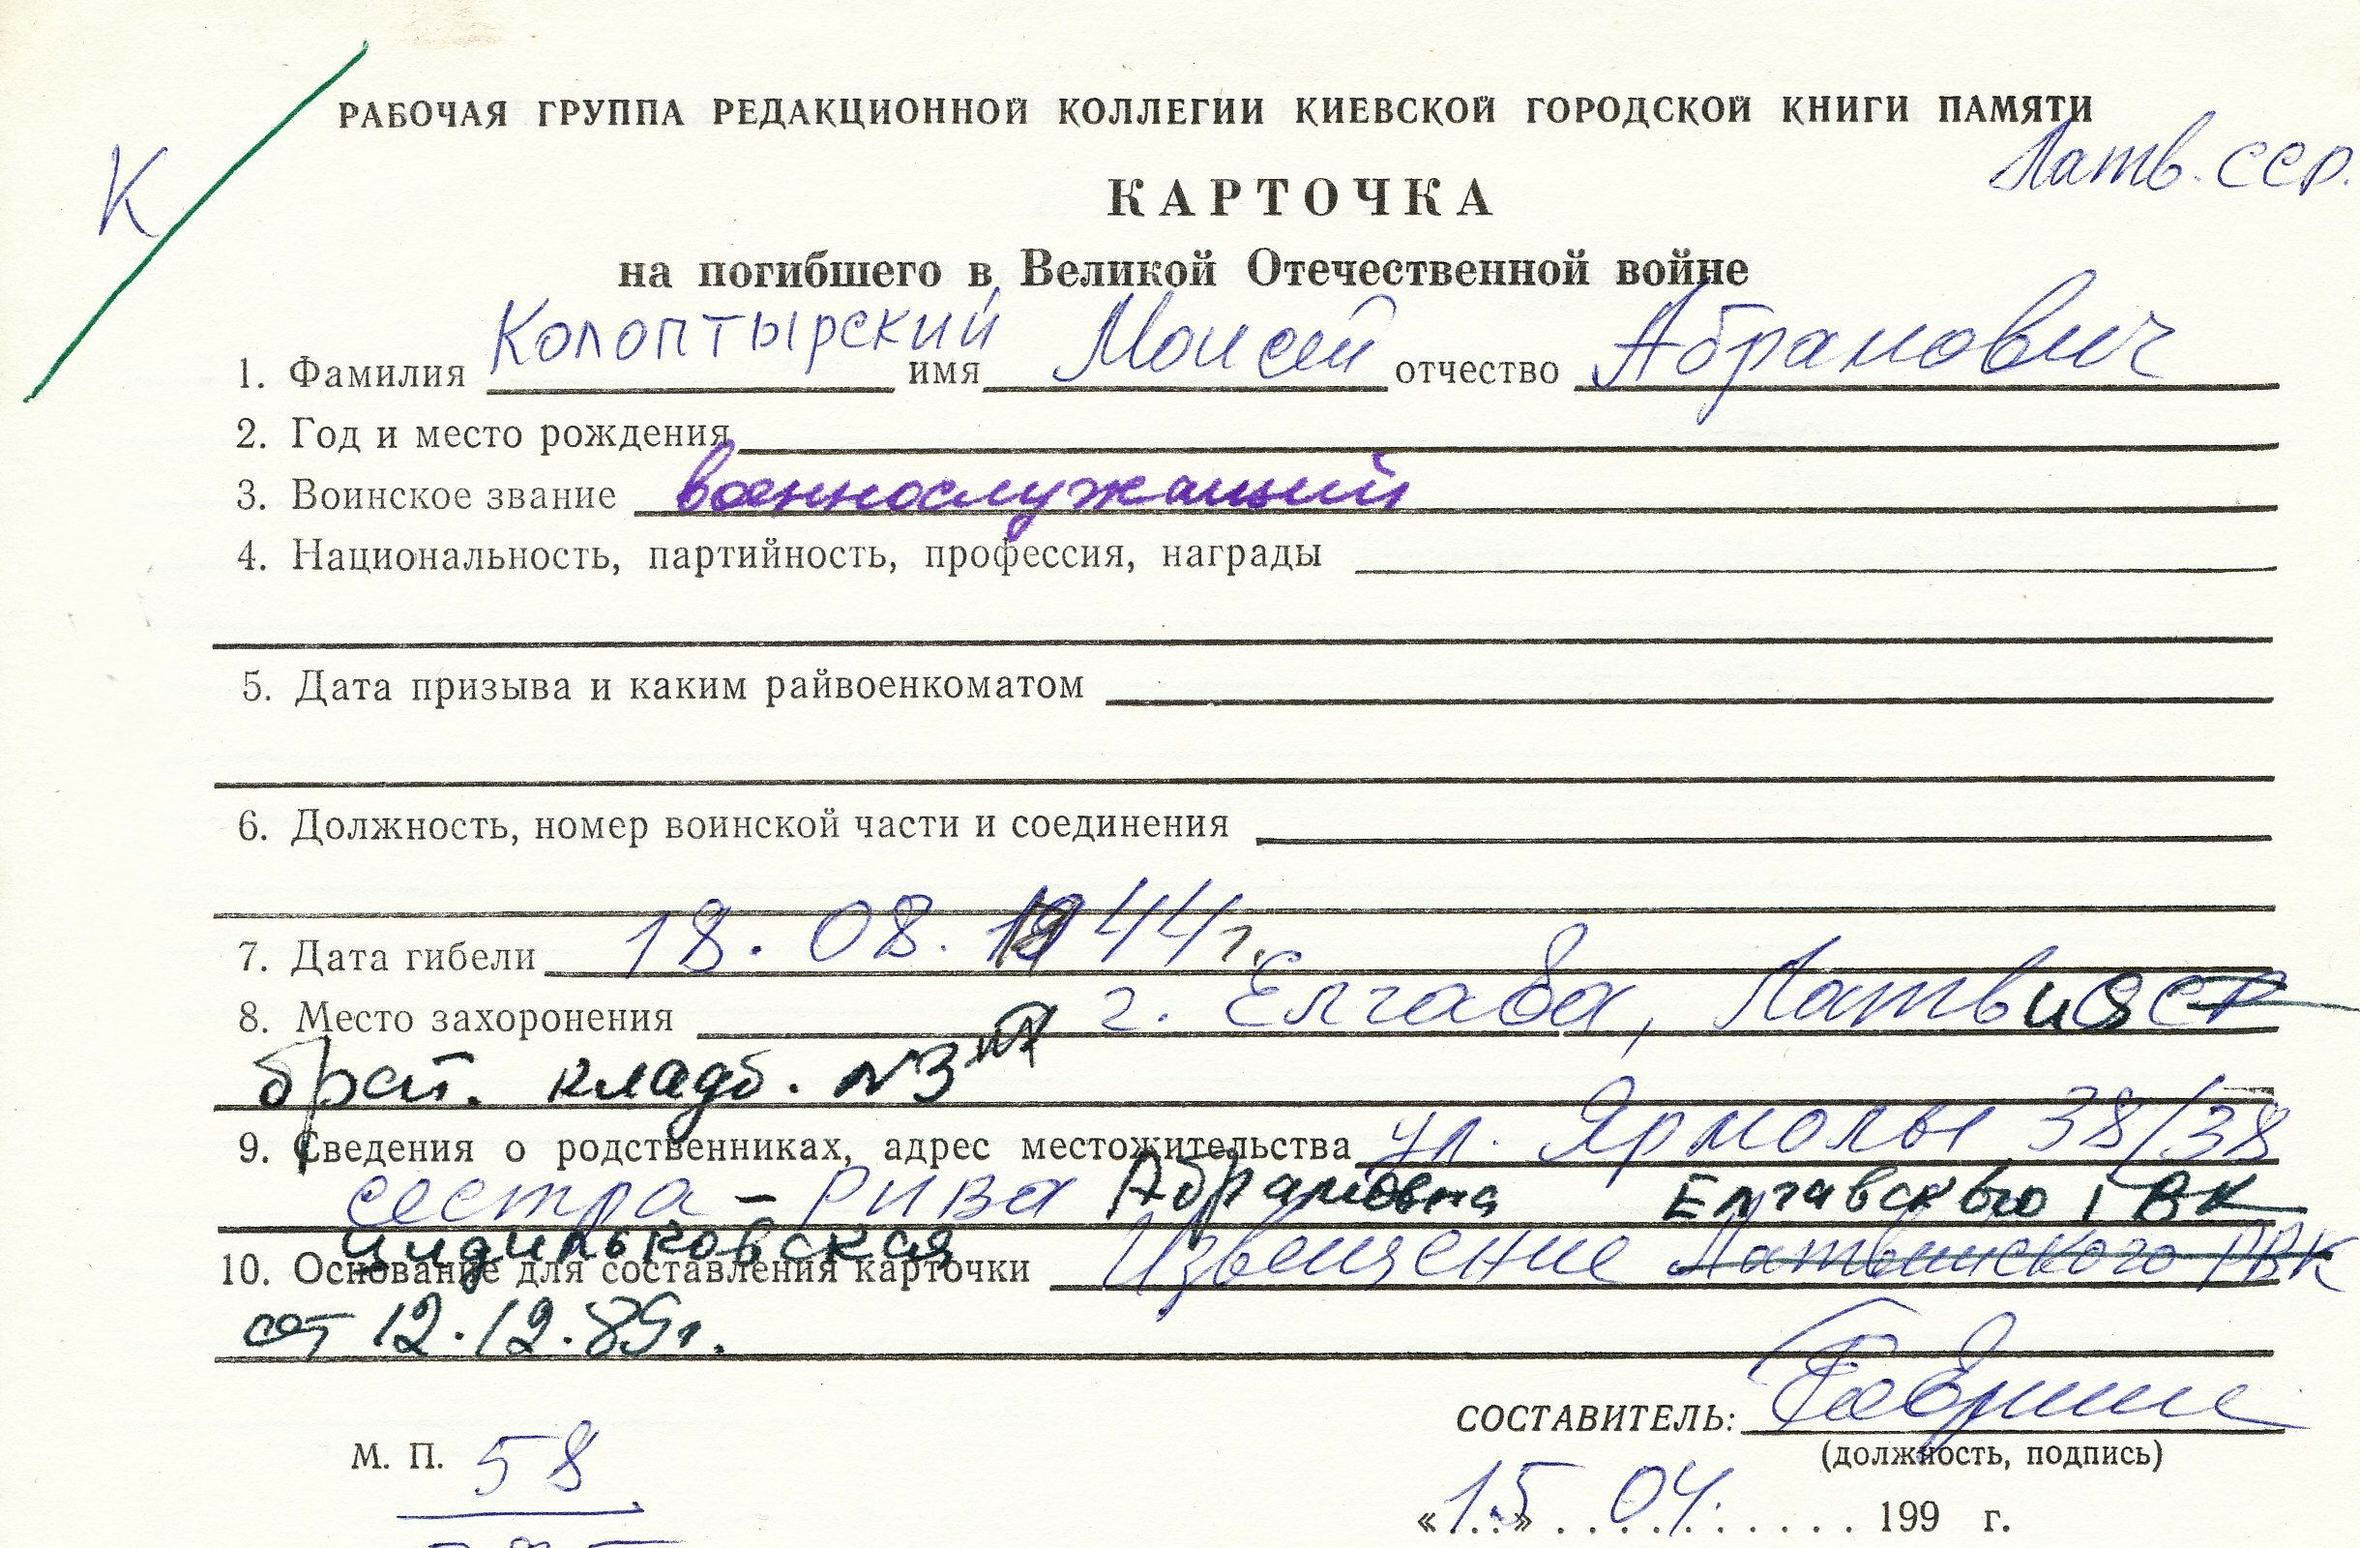 РАБОЧАЯ ГРУППА РЕДАКЦИОННОЙ КОЛЛЕГИИ КИЕВСКОЙ ГОРОДСКОЙ КНИГИ ПАМЯТИ
К
Латв. ССР.
КАРТОЧКА
на погибшего в Великой Отечественной войне
1. Фамилия Колоптырский имя Моисей отчество Абрамович
2. Год и место рождения
3. Воинское звание военнослужащий
4. Национальность, партийность, профессия, награды
5. Дата призыва и каким райвоенкоматом
6. Должность, номер воинской части и соединения
7. Дата гибели 18.08.1944 г.
8. Место захоронения г. Елгава, Латвия
брат. кладб. №3
9. Сведения о родственниках, адрес местожительства ул. Ярмолы 38/38
сестра - Рива Абрамовна Елгавского ГВК
Цидильковская
10. Основание для составления карточки Извещение Латвийского РВК
от 12.12.89г.
СОСТАВИТЕЛЬ:
(должность, подпись)
М. П. 58
«15» 04. 199 г.